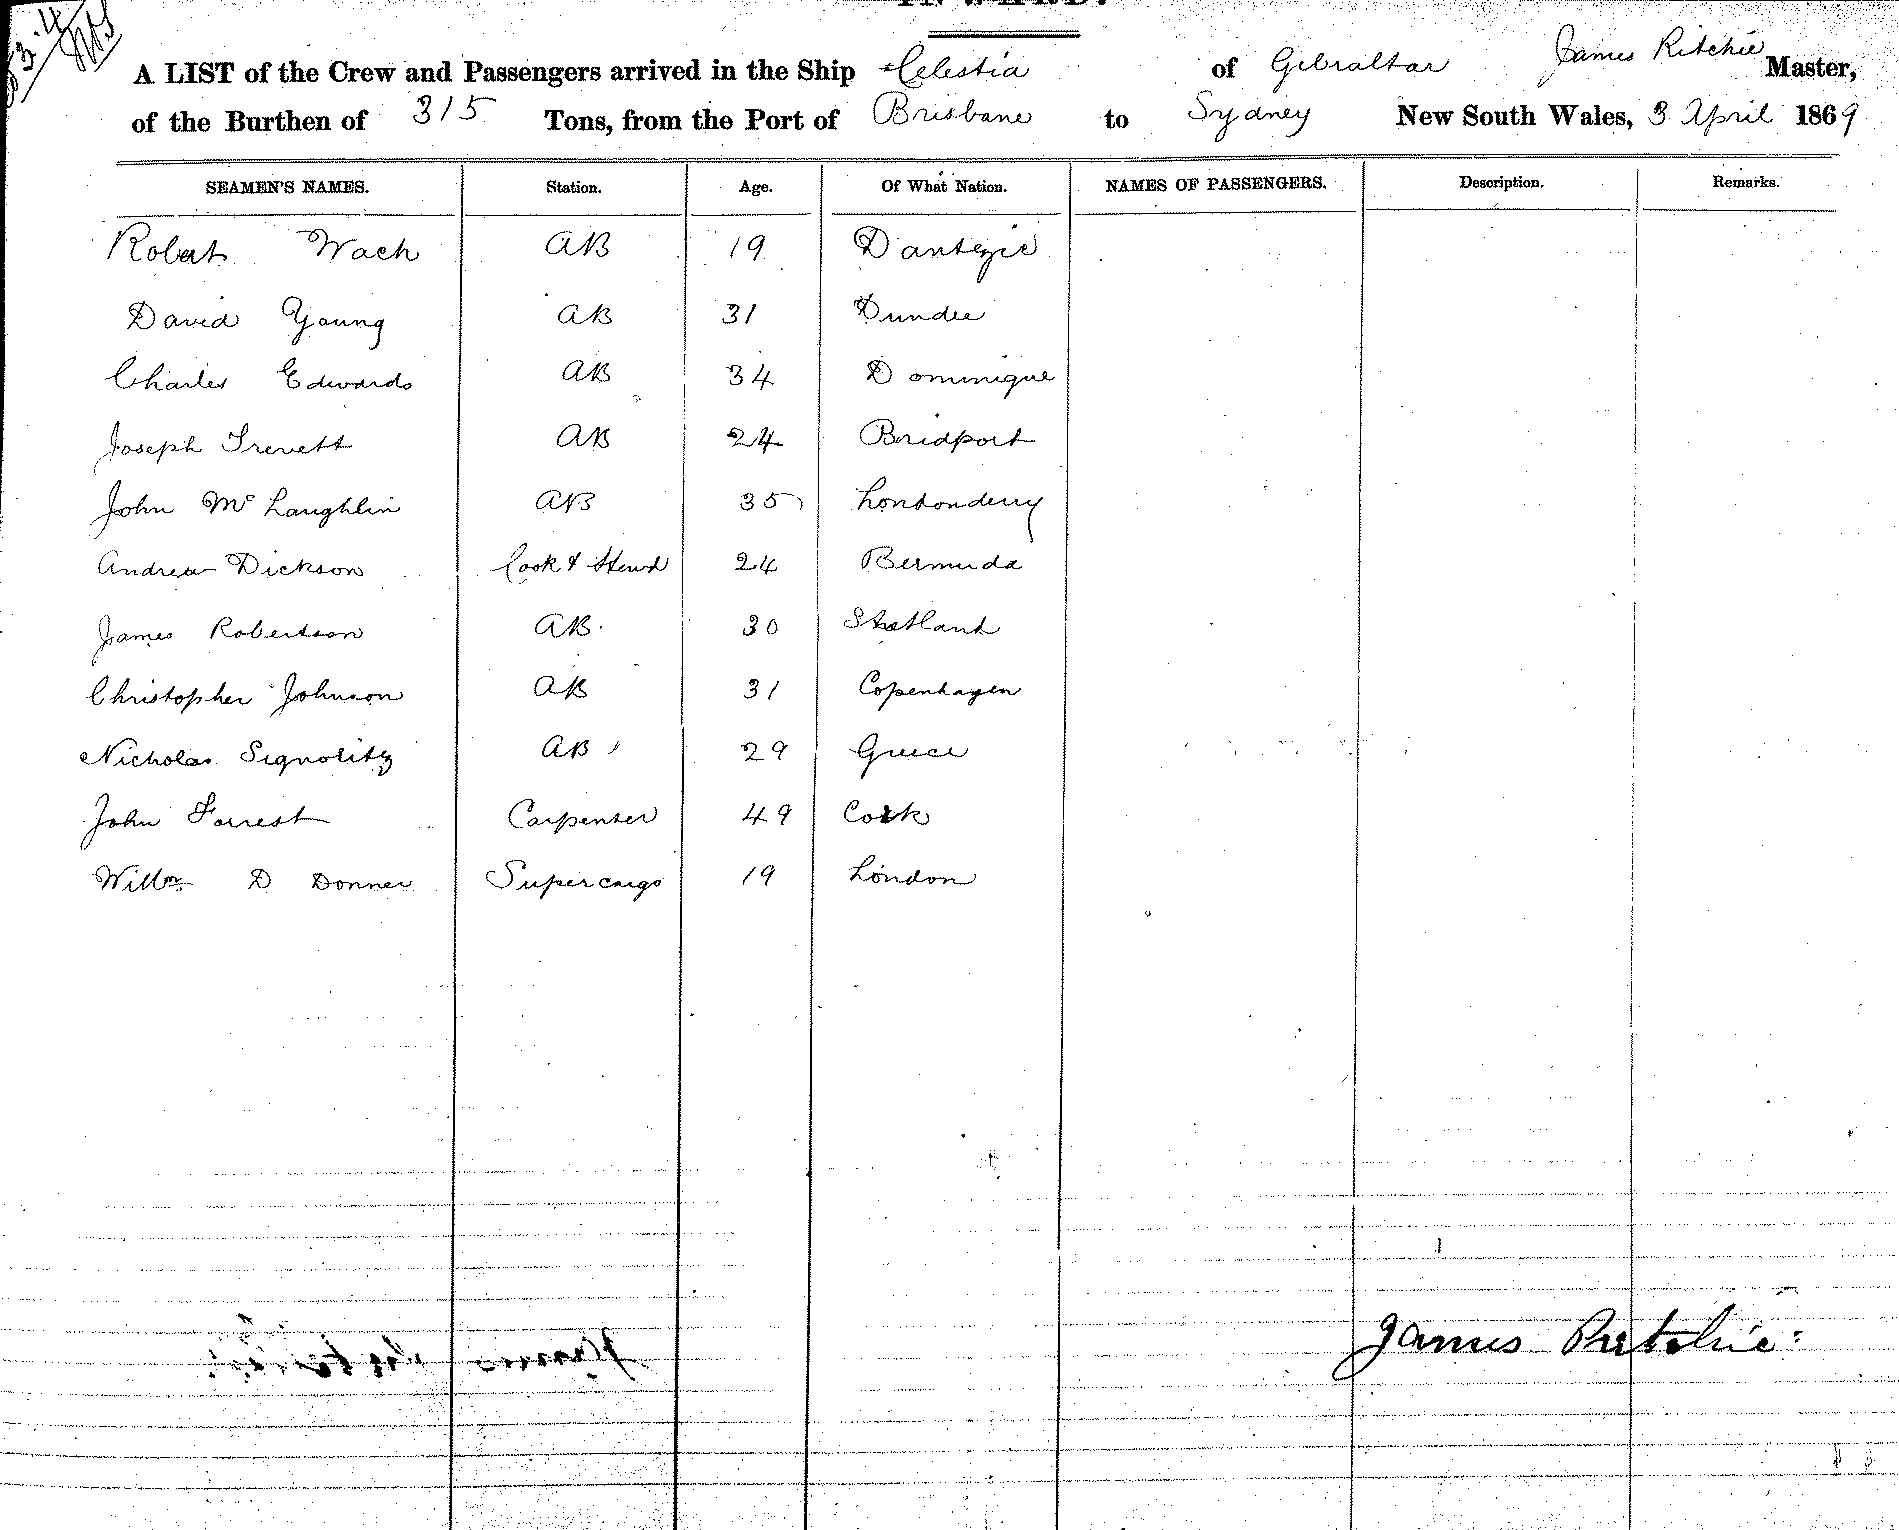 INWARD.
A LIST of the Crew and Passengers arrived in the Ship Celestia of Gibraltar James Ritchie Master,
of the Burthen of 315 Tons, from the Port of Brisbane to Sydney New South Wales, 3 April 1869
SEAMEN'S NAMES. Station. Age. Of What Nation. NAMES OF PASSENGERS. Description. Remarks.
Robert Wach AB 19 Dantzic
David Young AB 31 Dundee
Charles Edwards AB 34 Dominique
Joseph Trevett AB 24 Bridport
John Mc Laughlin AB 35 Londonderry
Andrew Dickson Cook & Stewd 24 Bermuda
James Robertson AB 30 Shetland
Christopher Johnson AB 31 Copenhagen
Nicholas Signority AB 29 Greece
John Forrest Carpenter 49 Cork
Willm D Donner Supercargo 19 London
James Ritchie